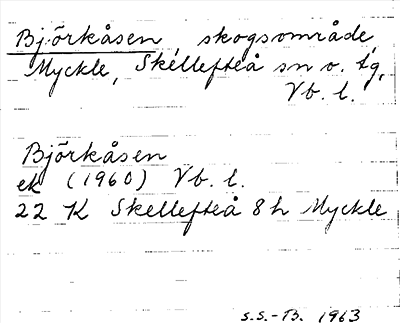 Björkåsen, skogsområde,
Myckle, Skellefteå sn o. tg,
Vb. l.
Björkåsen
ek (1960) Vb. l.
22 K Skellefteå 8h Myckle
S.S.-B. 1963